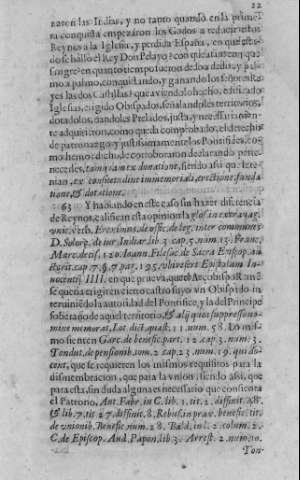 22
naron las Indias, y no tanto quando en la prime-
ra conquista empezaron los Godos a reducir estos
Reynos a la Iglesia, y perdida España, en que esta-
do se hallò el Rey Don Pelayo? con que afanes y que
sangre? en quanto tiempo fueron de dedo a dedo, y pal-
mo a palmo, conquistando, y ganando los señores Re-
yes las dos Castillas? que aviendolo hecho, edificado
Iglesias, erigido Obispados, señalandoles territorios,
dotadolos, dandoles Prelados, justa, y necessariamen-
te adquirieron, como queda comprobado, el derecho
de patronazgo y justissimamente los Pontifices, co-
mo hemos dicho de corroboraron declarando perte-
necerles, tanquam ex donatione, siendo assi que le te-
nian, ex consuetudine immemoriali, erectione, funda-
tione, & dotatione.
63 Y hablando en este caso sin hazer diferencia
de Reynos, califican esta opinion la glos. in extravag.
unic. verb. Eventions, de offic. de leg. inter communes
D. Solorç. de iur. Indiar. lib. 3. cap. 5. num. 13. Franc.
Marc. decis. 120. Ioann. Filesac de Sacra Episcop. au
ctorit. cap. 7. §. 7. pag. 195. ubi refert Epistolam In-
nocentij IIII. en que prueva, que el Arçobispo
queda erigir en cierto castro suyo un Obispado in-
terviniendo la autoridad del Pontifice, y la del Principe
soberano de aquel territorio, & alij quos suppresso no-
mine memorat, Lat. dict. quæst. 11. num. 58. Lo mis-
mo sienten Garc. de benefic. part. 12. cap. 3. num. 3.
Tondut. de pensionib. tom. 2. cap. 23. num. 19. qui do-
cent, que se requieren los mismos requisitos para la
dismembracion, que para la union; siendo assi, que
para esta, sin duda alguna es necessario que consienta
el Patrono, Ant. Fabr. in C. lib. 1. tit. 2. diffinit. 48.
& lib. 7. tit. 27. diffinit. 8. Rebuf. in prax. benefic. tit.
de unionib. Benefic. num. 28. Bald. in l. 2. colum. 2.
C. de Episcop. Aud. Papon. lib. 3. Arrest. 2. num. 10.
Ton-